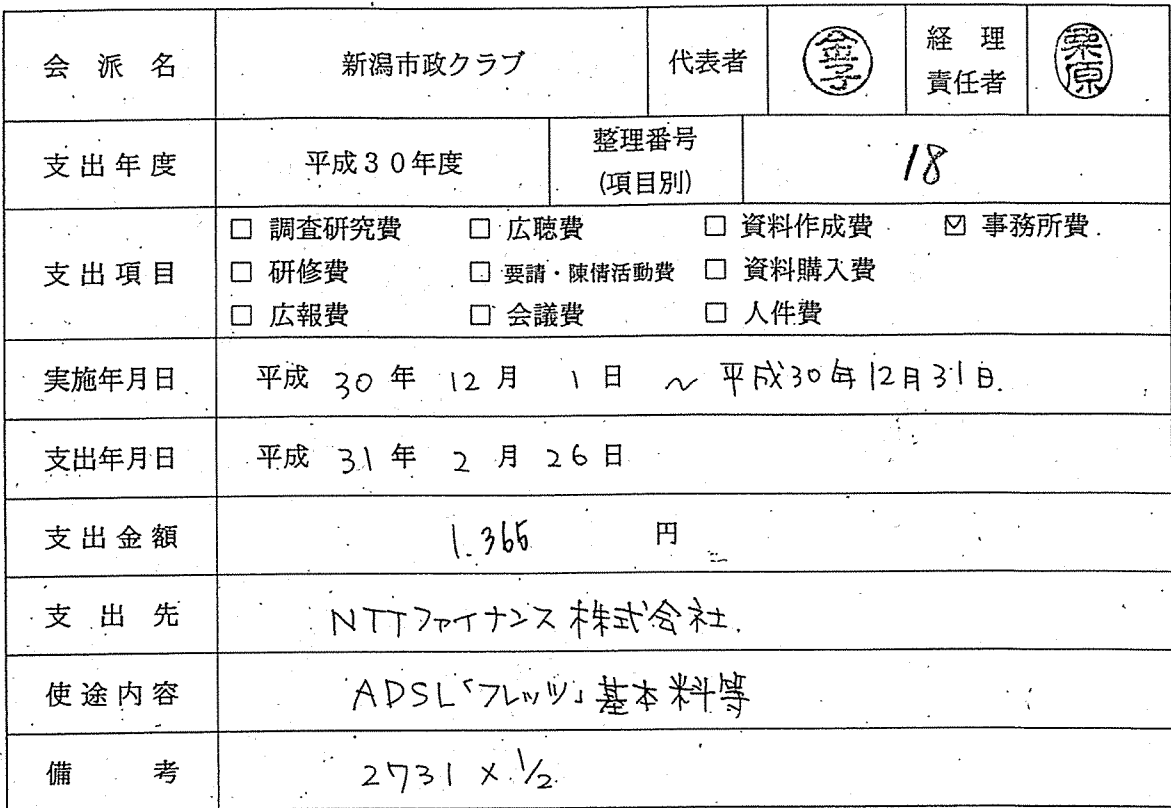 会派名 新潟市政クラブ 代表者 金子 経理責任者 栗原
支出年度 平成30年度 整理番号(項目別) 18
支出項目
□ 調査研究費 □ 広聴費 □ 資料作成費 ☑ 事務所費
□ 研修費 □ 要請・陳情活動費 □ 資料購入費
□ 広報費 □ 会議費 □ 人件費
実施年月日 平成 30 年 12 月 1 日 ~ 平成30年12月31日.
支出年月日 平成 31 年 2 月 26 日
支出金額 1.365 円
支出先 NTTファイナンス株式会社.
使途内容 ADSL「フレッツ」基本料等
備考 2731 × 1/2